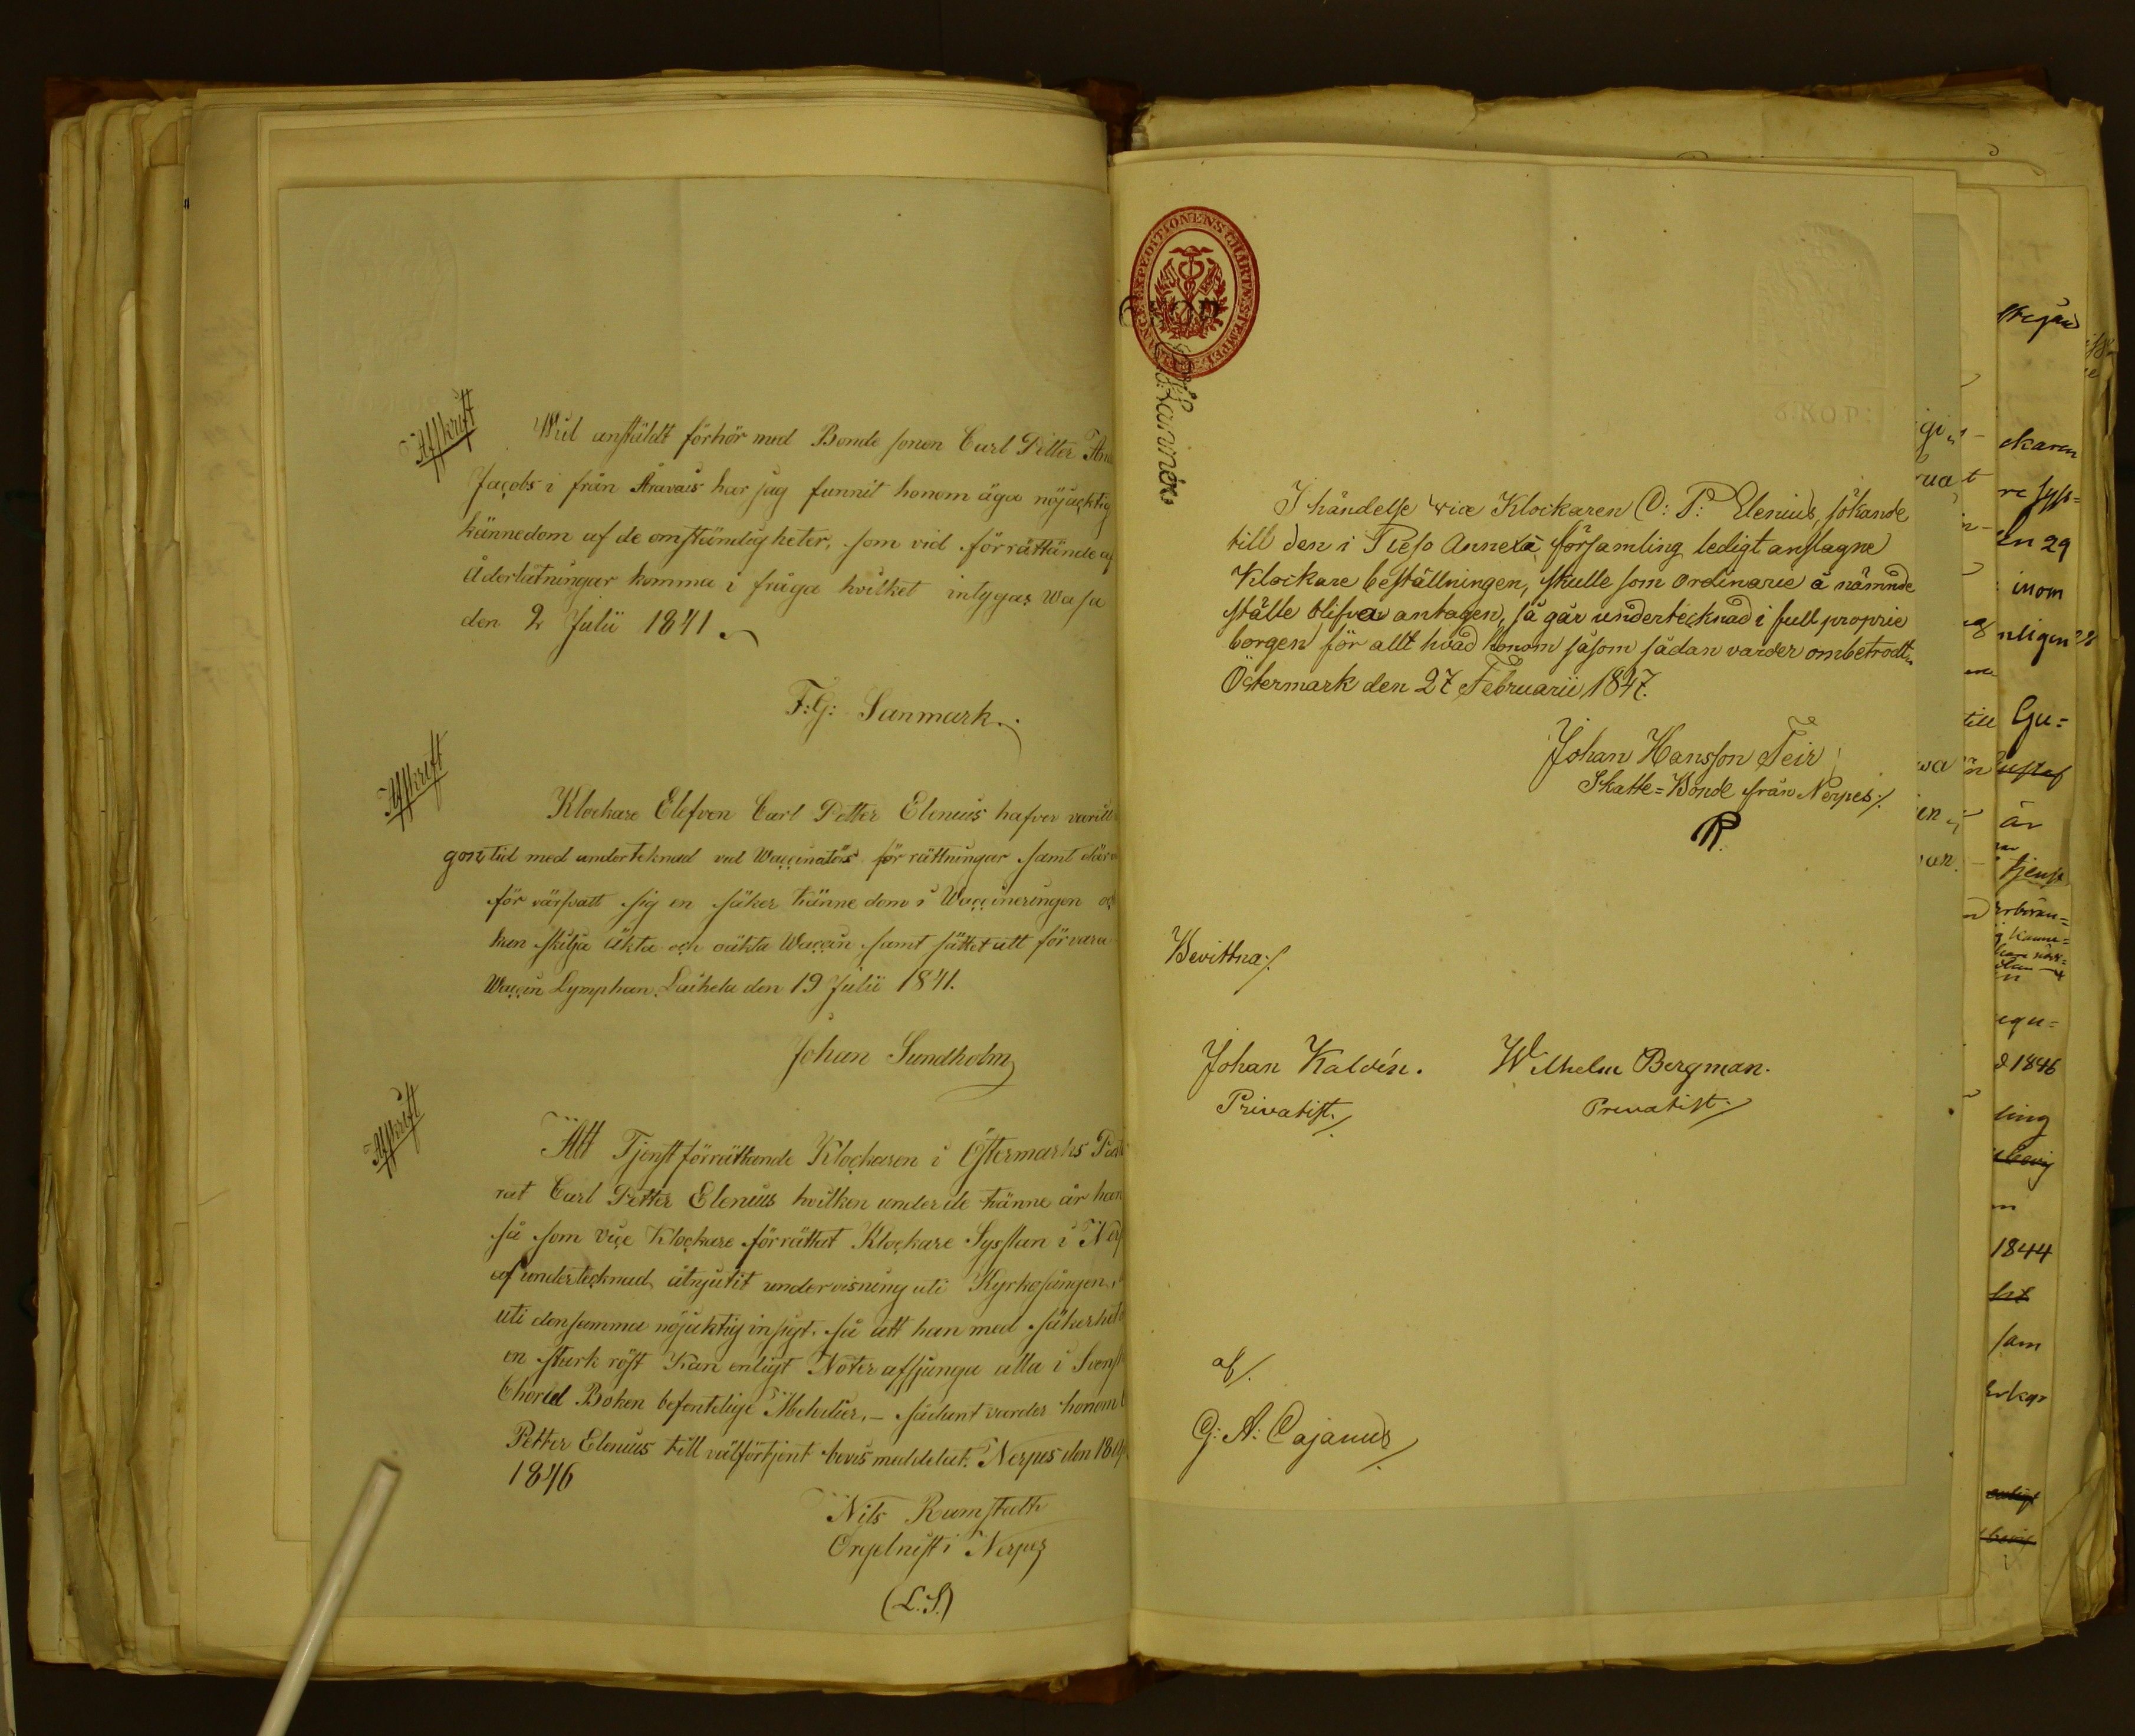 Afskrift
Wid anstäldt förhör med Bonde sonen Carl Petter
Jacobs i från Åravais har jag funnit honom äga nöjacktig
kännedom af de omständigheter, som vid förrättande af
Åderlåtningar komma i fråga hvilket intygas Wasa
den 2 Julii 1841
F:G: Sanmark.
Afskrift
Klockare Elefven Carl Petter Elenius hafver varit
gon tid med underteknad vid Waccinatörs förrättningar samt där
för värfvatt sig en säker kännedom i Waccineringen och
kan skilja äkta och oäkta Waccin samt sättet att förvara
Waccin Lymphan. Laihela den 19 Julii 1841.
Johan Sundholm
Afskrift
Att Tjenstförrättande Klockaren i Östermarks Past
rat Carl Petter Elenius hvilken under de tvänne år han
så som vice Klockare förrättat Klockare Sysslan i Nerp
af undertecknad, åtnjutit undervisning uti Kyrkosången,
uti densamma nöjaktig insigt, så att han med säkerhet
en stark röst kan enligt Noter afsjunga alla i Svensk
Choral Boken befintelige Melodier, – sådant varder honom
Petter Elenius till välförtjent bevis meddelat. Nerpes den 18
1846
Nils Ramstadh
Orgelnist i Nerpes
(L.S.)
EXPEDITIONENS CHARTÆ STEMPEL
6 KOP
I händelse vice Klockaren C: P: Elenius, sökande
till den i Annexa församling ledigt anslagne
Klockare beställningen, skulle som Ordinarie å nämnde
ställe blifva antagen, så går undertecknad i full proprie
borgen för allt hvad honom såsom sådan varder ombetrodt
Östermark den 27 Februarii 1847.
Johan Hansson Teir
Skatte=Bonde från Nerpes
R
Bevittna
Johan Kaldén. Wilhelm Bergman.
Privatist. Privatist.
af
G: A: Cajanus
6. KOP:
ckaren
re syss=
en 29
inom
nligen
till Gu=
ustaf
är
tjenst
equ=
d 1846
ling
1844
sam